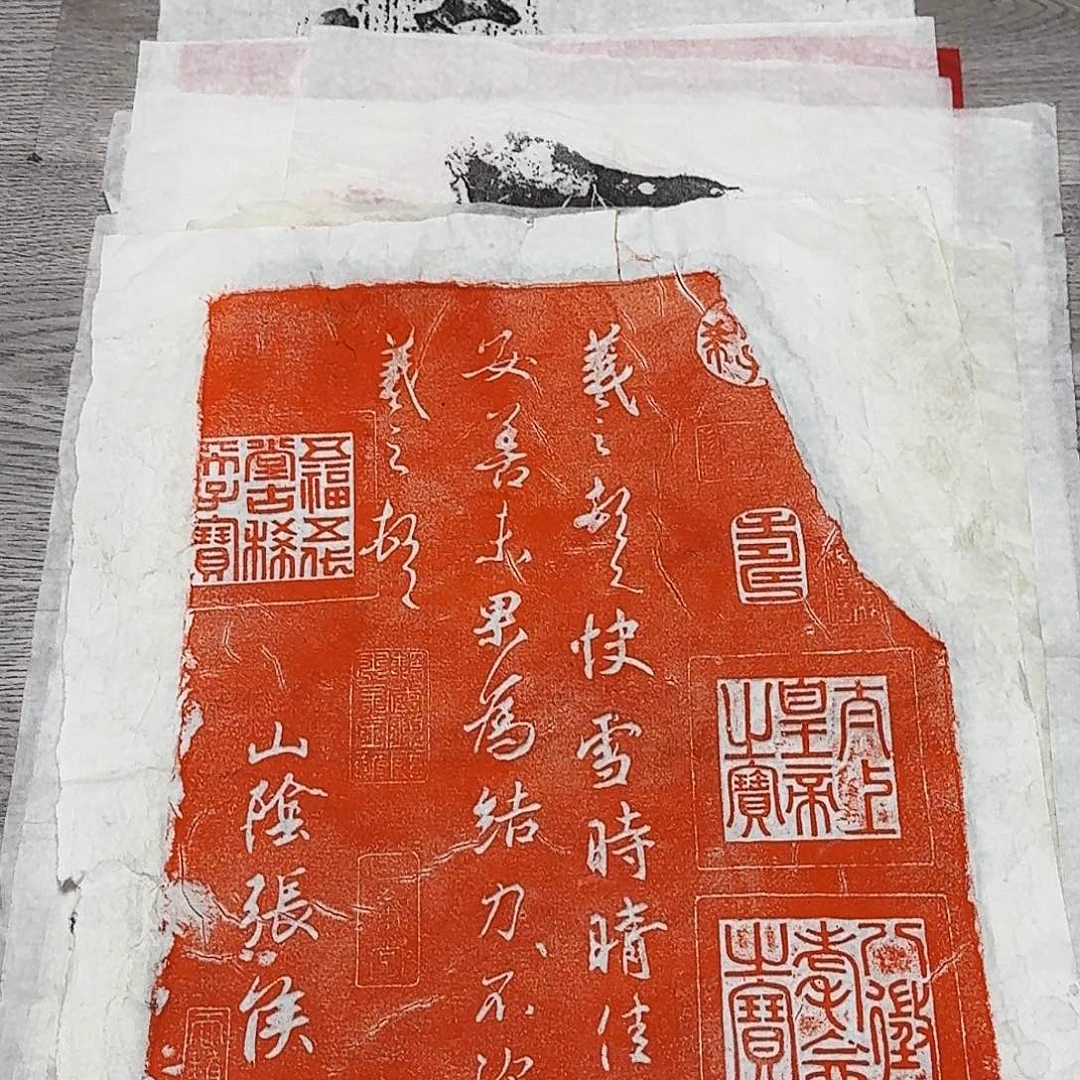 太上皇帝之寶
八徵耄念之寶
羲之頓首快雪時晴佳
安善未果為結力不次
羲之頓首
山陰張侯
五福五代堂古稀天子寶